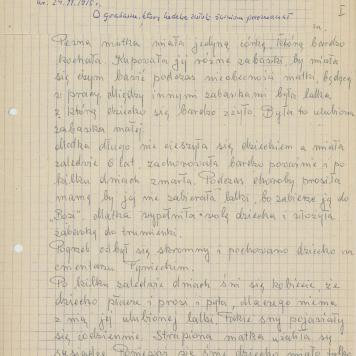 ur. 24.11.1915 r.
I
O grabarzu, który
Pewna matka miała jedyną córkę, którą bardzo
kochała. Kupowała jej różne zabawki by miała
się czym bawić podczas nieobecności matki, będącej
w pracy. Między innymi zabawkami była lalka
z którą dziecko się bardzo zżyło. Była to ulubiona
zabawka małej.
Matka długo nie cieszyła się dzieckiem a miała
zaledwie 6 lat, zachorowała bardzo poważnie i po
kilku dniach zmarła. Podczas choroby prosiła
mamę by jej nie zabierała lalki, bo zabierze ją do
"Bozi". Matka spełniła wolę dziecka i włożyła
zabawkę do trumienki.
Pogrzeb odbył się skromny i pochowano dziecko na
cmentarzu
Po kilku zaledwie dniach śni się kobiecie, że
dziecko płacze i prosi i pyta, dlaczego niema
z nią jej ulubionej lalki. Takie sny pojawiały
się codziennie. Strapiona matka
sąsiadce. Ponieważ się śni dziecko